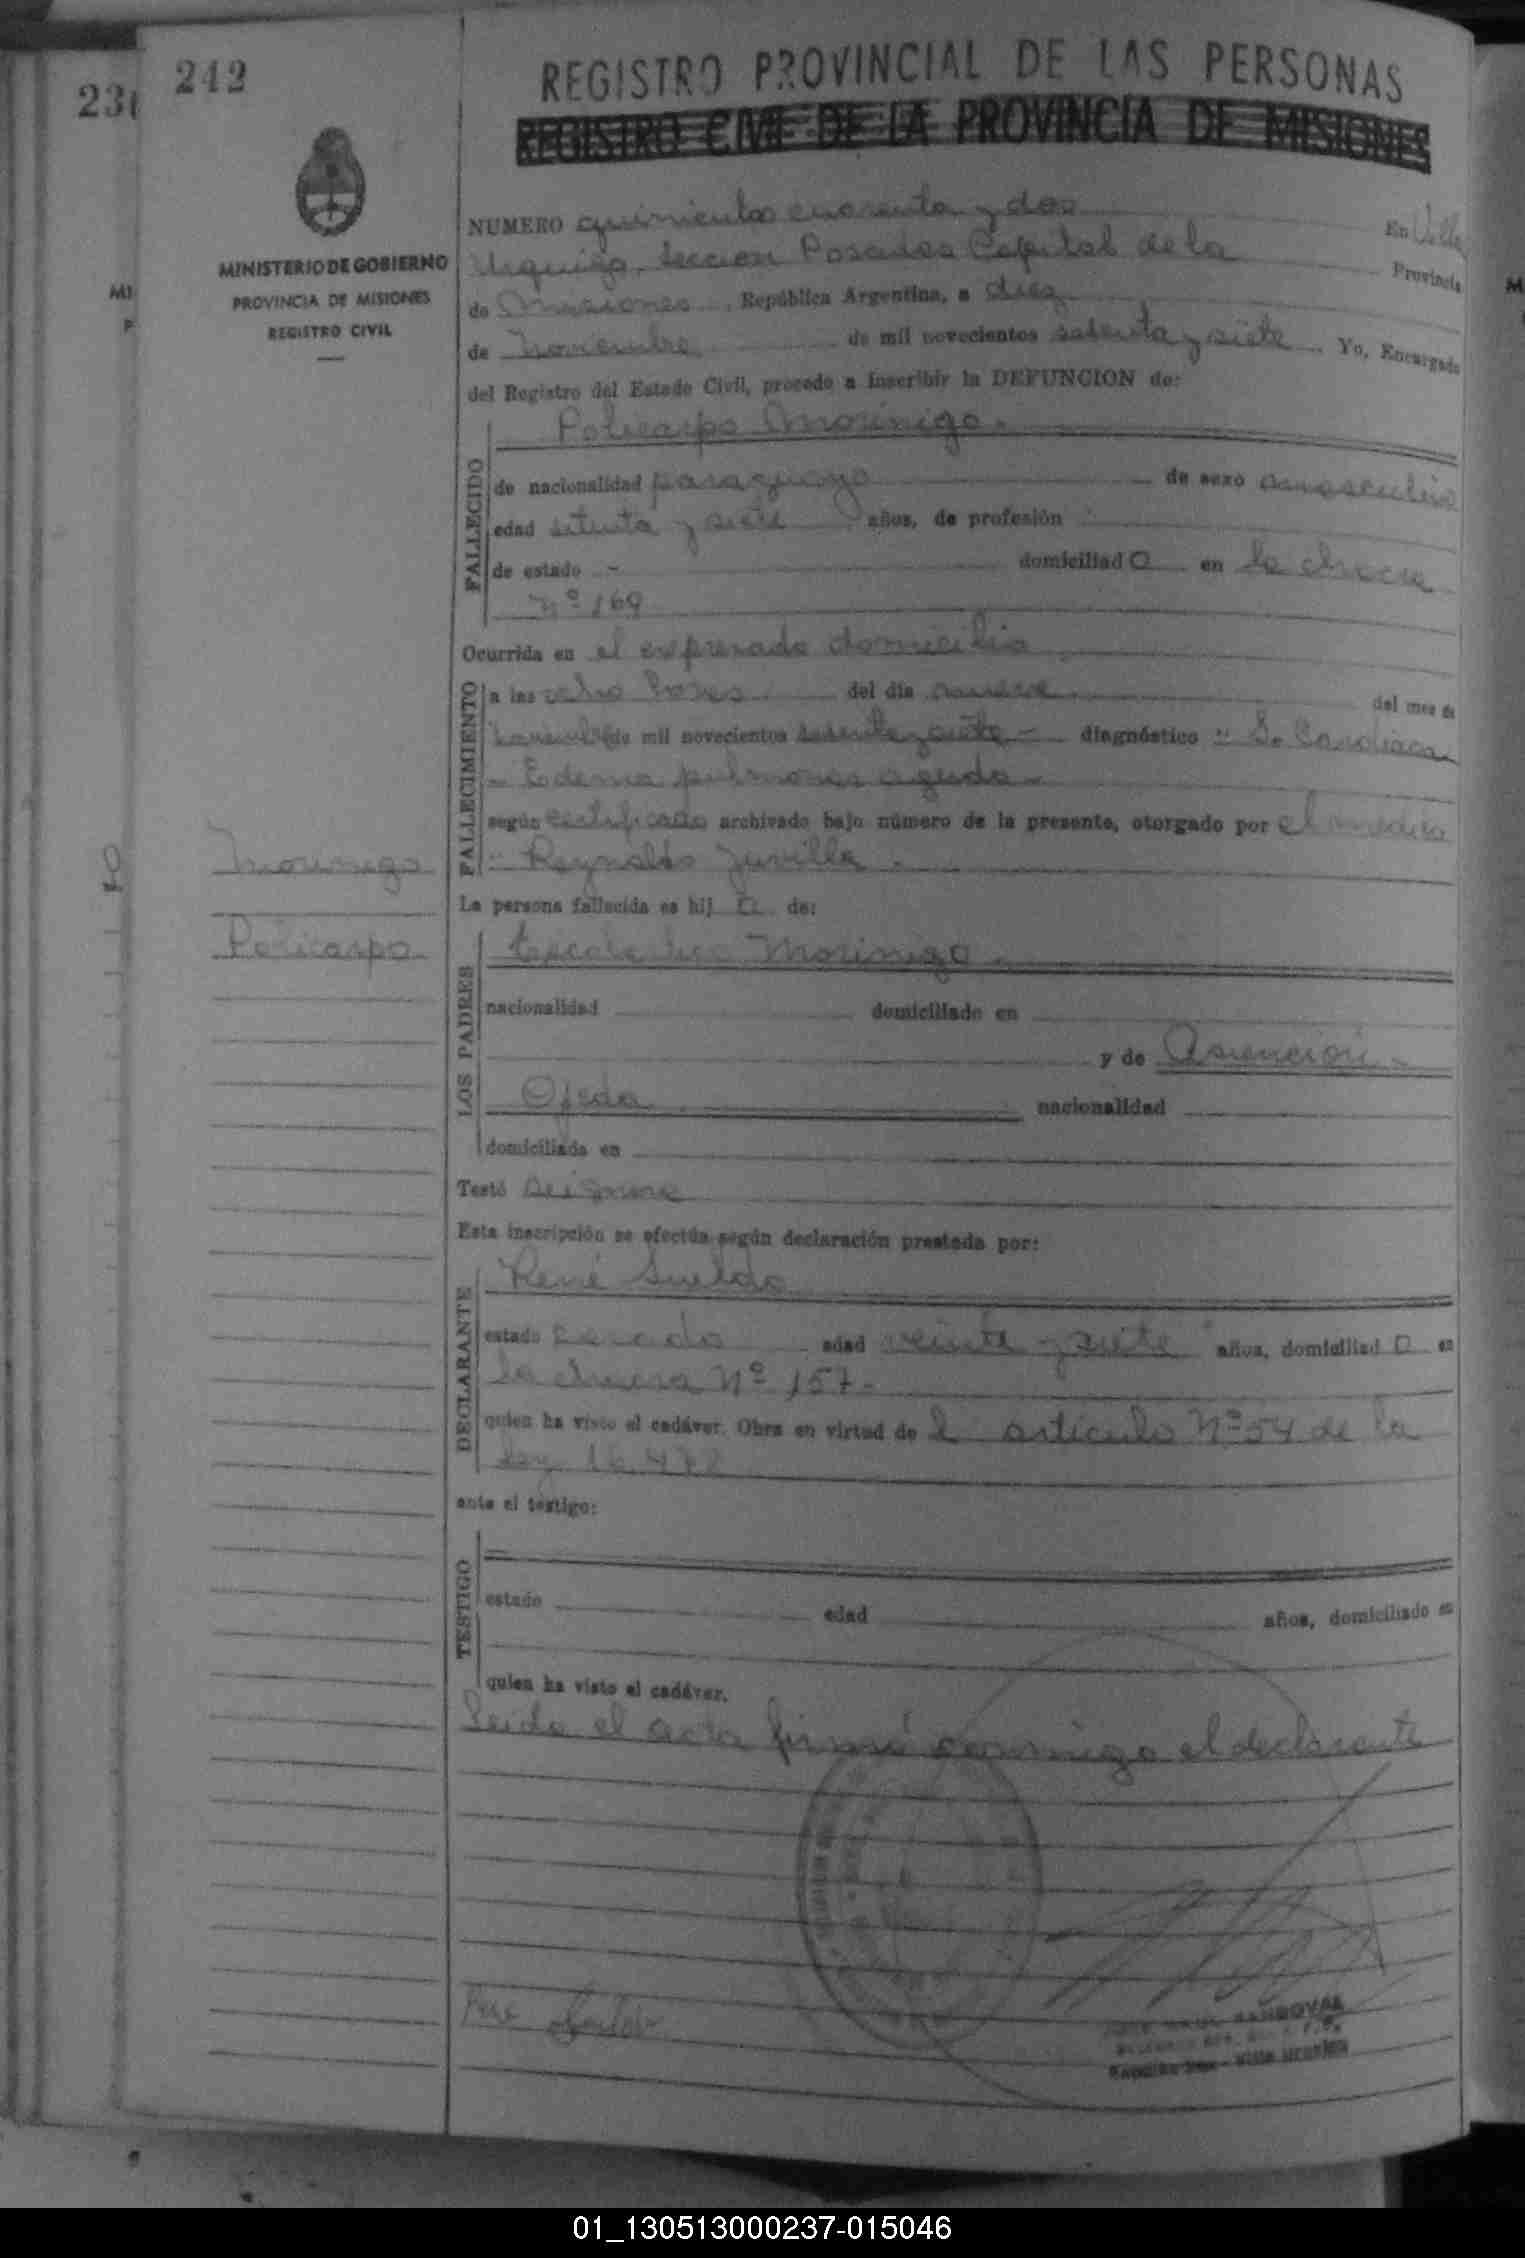 242
REGISTRO PROVINCIAL DE LAS PERSONAS
REGISTRO CIVIL DE LA PROVINCIA DE MISIONES
MINISTERIO DE GOBIERNO
PROVINCIA DE MISIONES
REGISTRO CIVIL
NUMERO quinientos cuarenta y dos En Villa
Urquiza, Sección Posadas Capital de la Provincia
de Misiones, República Argentina, a diez
de Noviembre de mil novecientos setenta y siete. Yo, Encargado
del Registro del Estado Civil, procedo a inscribir la DEFUNCION de:
Policarpo Morinigo.
FALLECIDO
de nacionalidad paraguaya de sexo masculino
edad setenta y siete años, de profesión
de estado - domiciliado en la chacra
Nº 169
Ocurrida en el expresado domicilio
FALLECIMIENTO
a las ocho horas del día nueve del mes de
Noviembre de mil novecientos setenta y siete - diagnóstico : Cardiaca
- Edema pulmonar agudo -
según certificado archivado bajo número de la presente, otorgado por el médico
Reynaldo
Morinigo
Policarpo
La persona fallecida es hijo de:
LOS PADRES
Morinigo
nacionalidad domiciliado en
y de Asención -
Ojeda nacionalidad
domiciliada en
Testó se ignora
Esta inscripción se efectúa según declaración prestada por:
DECLARANTE
René Sueldo
estado casado edad veinte y siete años, domiciliado en
la chacra Nº 157 -
quien ha visto el cadáver. Obra en virtud del artículo Nº 54 de la
Ley 16.478
ante el testigo:
TESTIGO
estado edad años, domiciliado en
quien ha visto el cadáver.
Leída el acta firmó conmigo el declarante
SANDOVAL
Villa Urquiza
01_130513000237-015046